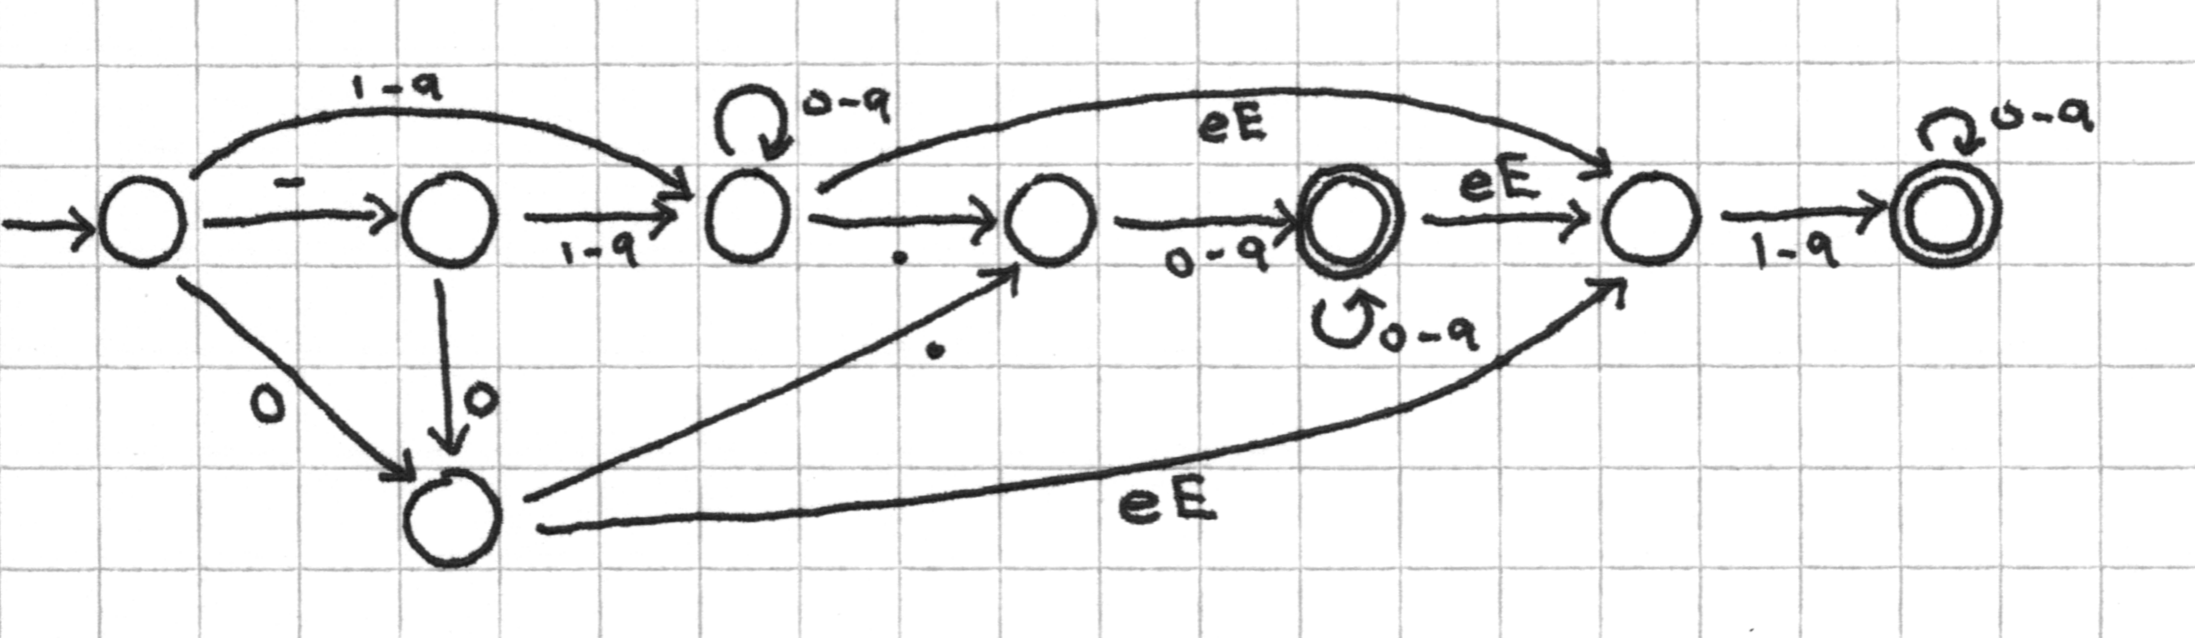 1-9
0-9
eE
0-9
-
eE
1-9
.
0-9
1-9
0-9
.
0
0
eE